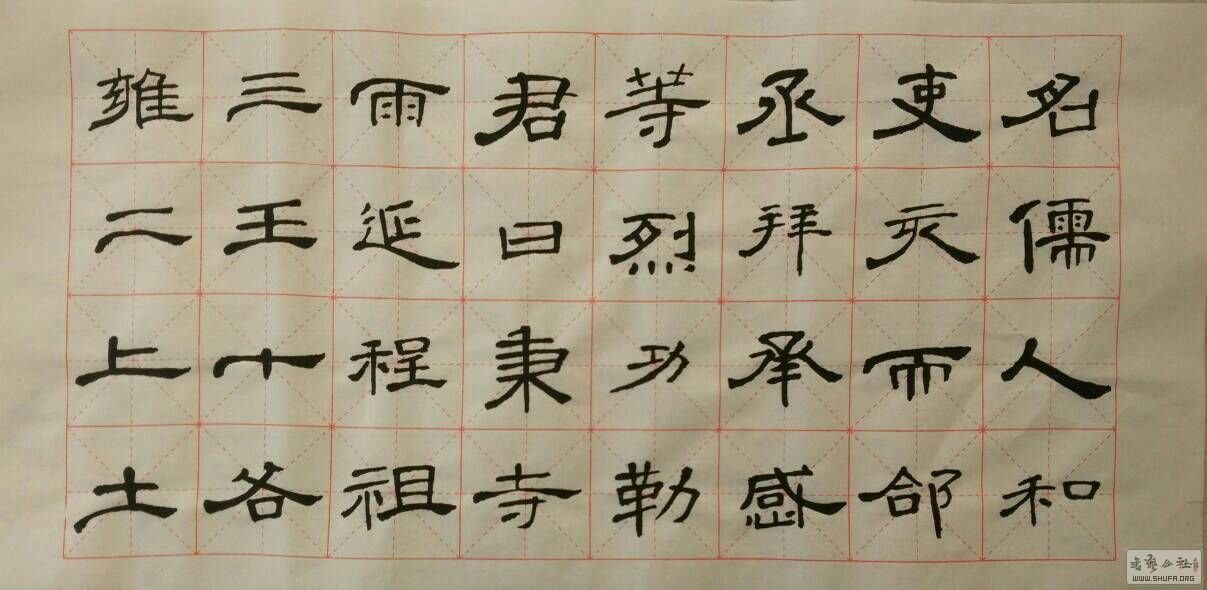 名儒人和
吏而郃
丞拜承感
等烈功勒
君曰秉寺
雨延程祖
三王十各
雍二上土
書藝公社
WWW.SHUFA.ORG